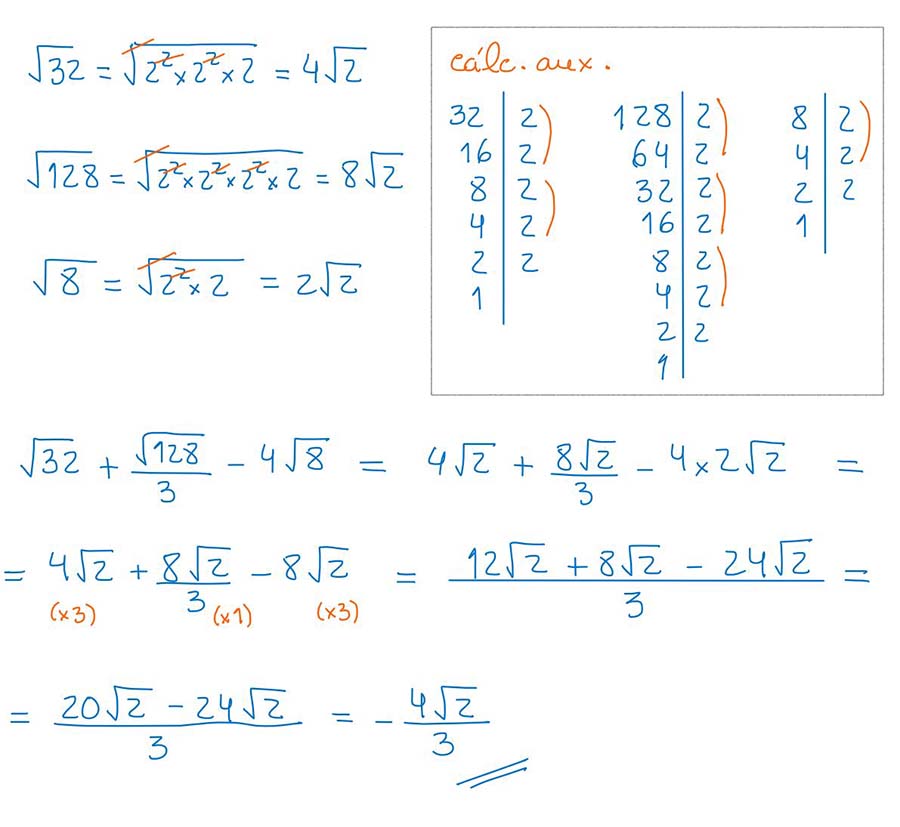 √32 = √(2²×2²×2) = 4√2
√128 = √(2²×2²×2²×2) = 8√2
√8 = √(2²×2) = 2√2
cálc. aux.
32 | 2
16 | 2
8 | 2
4 | 2
2 | 2
1 |
128 | 2
64 | 2
32 | 2
16 | 2
8 | 2
4 | 2
2 | 2
1 |
8 | 2
4 | 2
2 | 2
1 |
√32 + √128/3 − 4√8 = 4√2 + 8√2/3 − 4×2√2 =
= 4√2 + 8√2/3 − 8√2 = (12√2 + 8√2 − 24√2)/3 =
(×3) (×1) (×3)
= (20√2 − 24√2)/3 = − 4√2/3